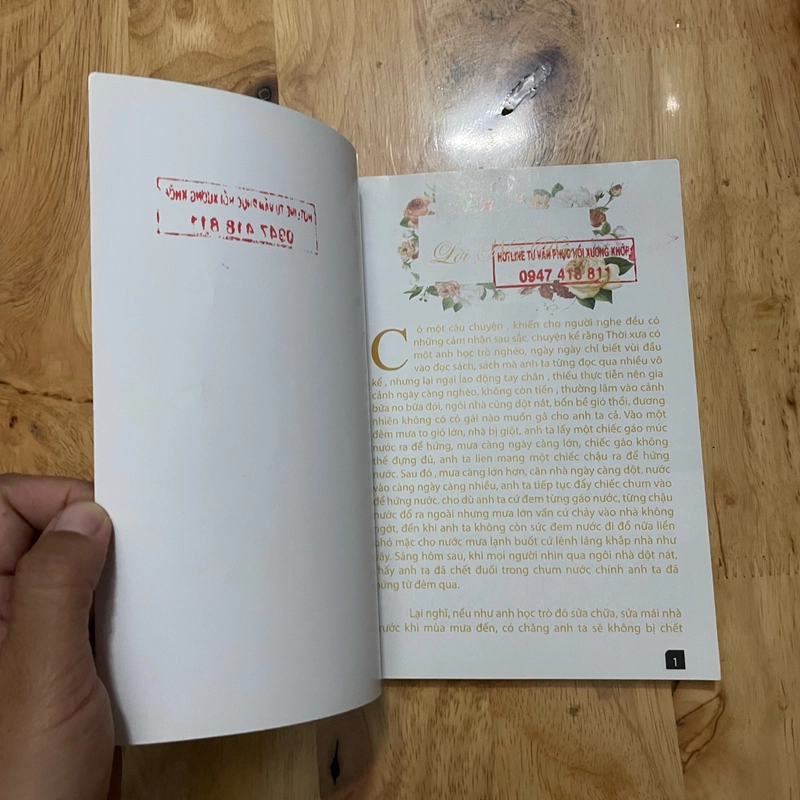 HOTLINE TƯ VẤN PHỤC HỒI XƯƠNG KHỚP
0947 418 811
Lời
HOTLINE TƯ VẤN PHỤC HỒI XƯƠNG KHỚP
0947 418 811
Có một câu chuyện , khiến cho người nghe đều có
những cảm nhận sau sắc, chuyện kể rằng Thời xưa có
một anh học trò nghèo, ngày ngày chỉ biết vùi đầu
vào đọc sách, sách mà anh ta từng đọc qua nhiều vô
kể , nhưng lại ngại lao động tay chân , thiếu thực tiễn nên gia
cảnh ngày càng nghèo, không còn tiền , thường lâm vào cảnh
bữa no bữa đói, ngôi nhà cũng dột nát, bốn bề gió thổi, đương
nhiên không có cô gái nào muốn gả cho anh ta cả. Vào một
đêm mưa to gió lớn, nhà bị giột, anh ta lấy một chiếc gáo múc
nước ra để hứng, mưa càng ngày càng lớn, chiếc gáo không
thể đựng đủ, anh ta lien mang một chiếc chậu ra để hứng
nước. Sau đó , mưa càng lớn hơn, căn nhà ngày càng dột, nước
vào càng ngày càng nhiều, anh ta tiếp tục đẩy chiếc chum vào
để hứng nước. cho dù anh ta cứ đem từng gáo nước, từng chậu
nước đổ ra ngoài nhưng mưa lớn vẫn cứ chảy vào nhà không
ngớt, đến khi anh ta không còn sức đem nước đi đổ nữa liền
phó mặc cho nước mưa lạnh buốt cứ lênh láng khắp nhà như
vậy. Sáng hôm sau, khi mọi người nhìn qua ngôi nhà dột nát,
thấy anh ta đã chết đuối trong chum nước chính anh ta đã
hứng từ đêm qua.
Lại nghĩ, nếu như anh học trò đó sửa chữa, sửa mái nhà
trước khi mùa mưa đến, có chăng anh ta sẽ không bị chết
1